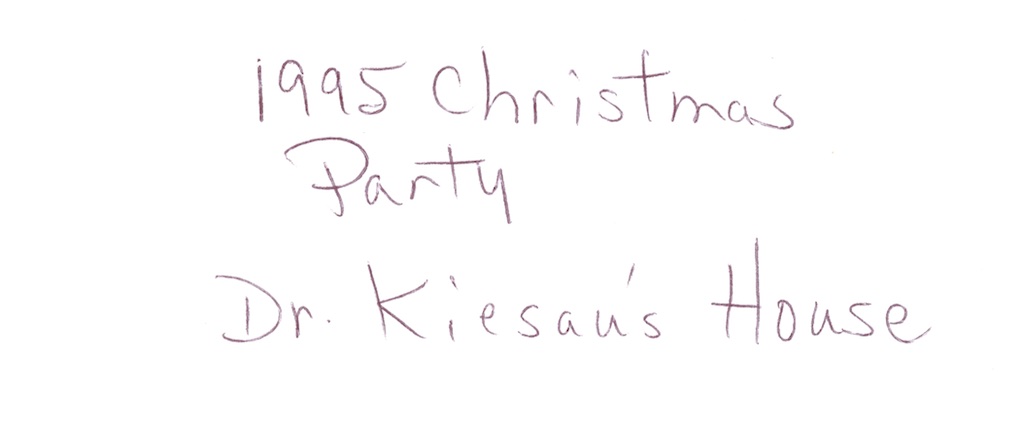 1995 Christmas
Party
Dr. Kiesau's House